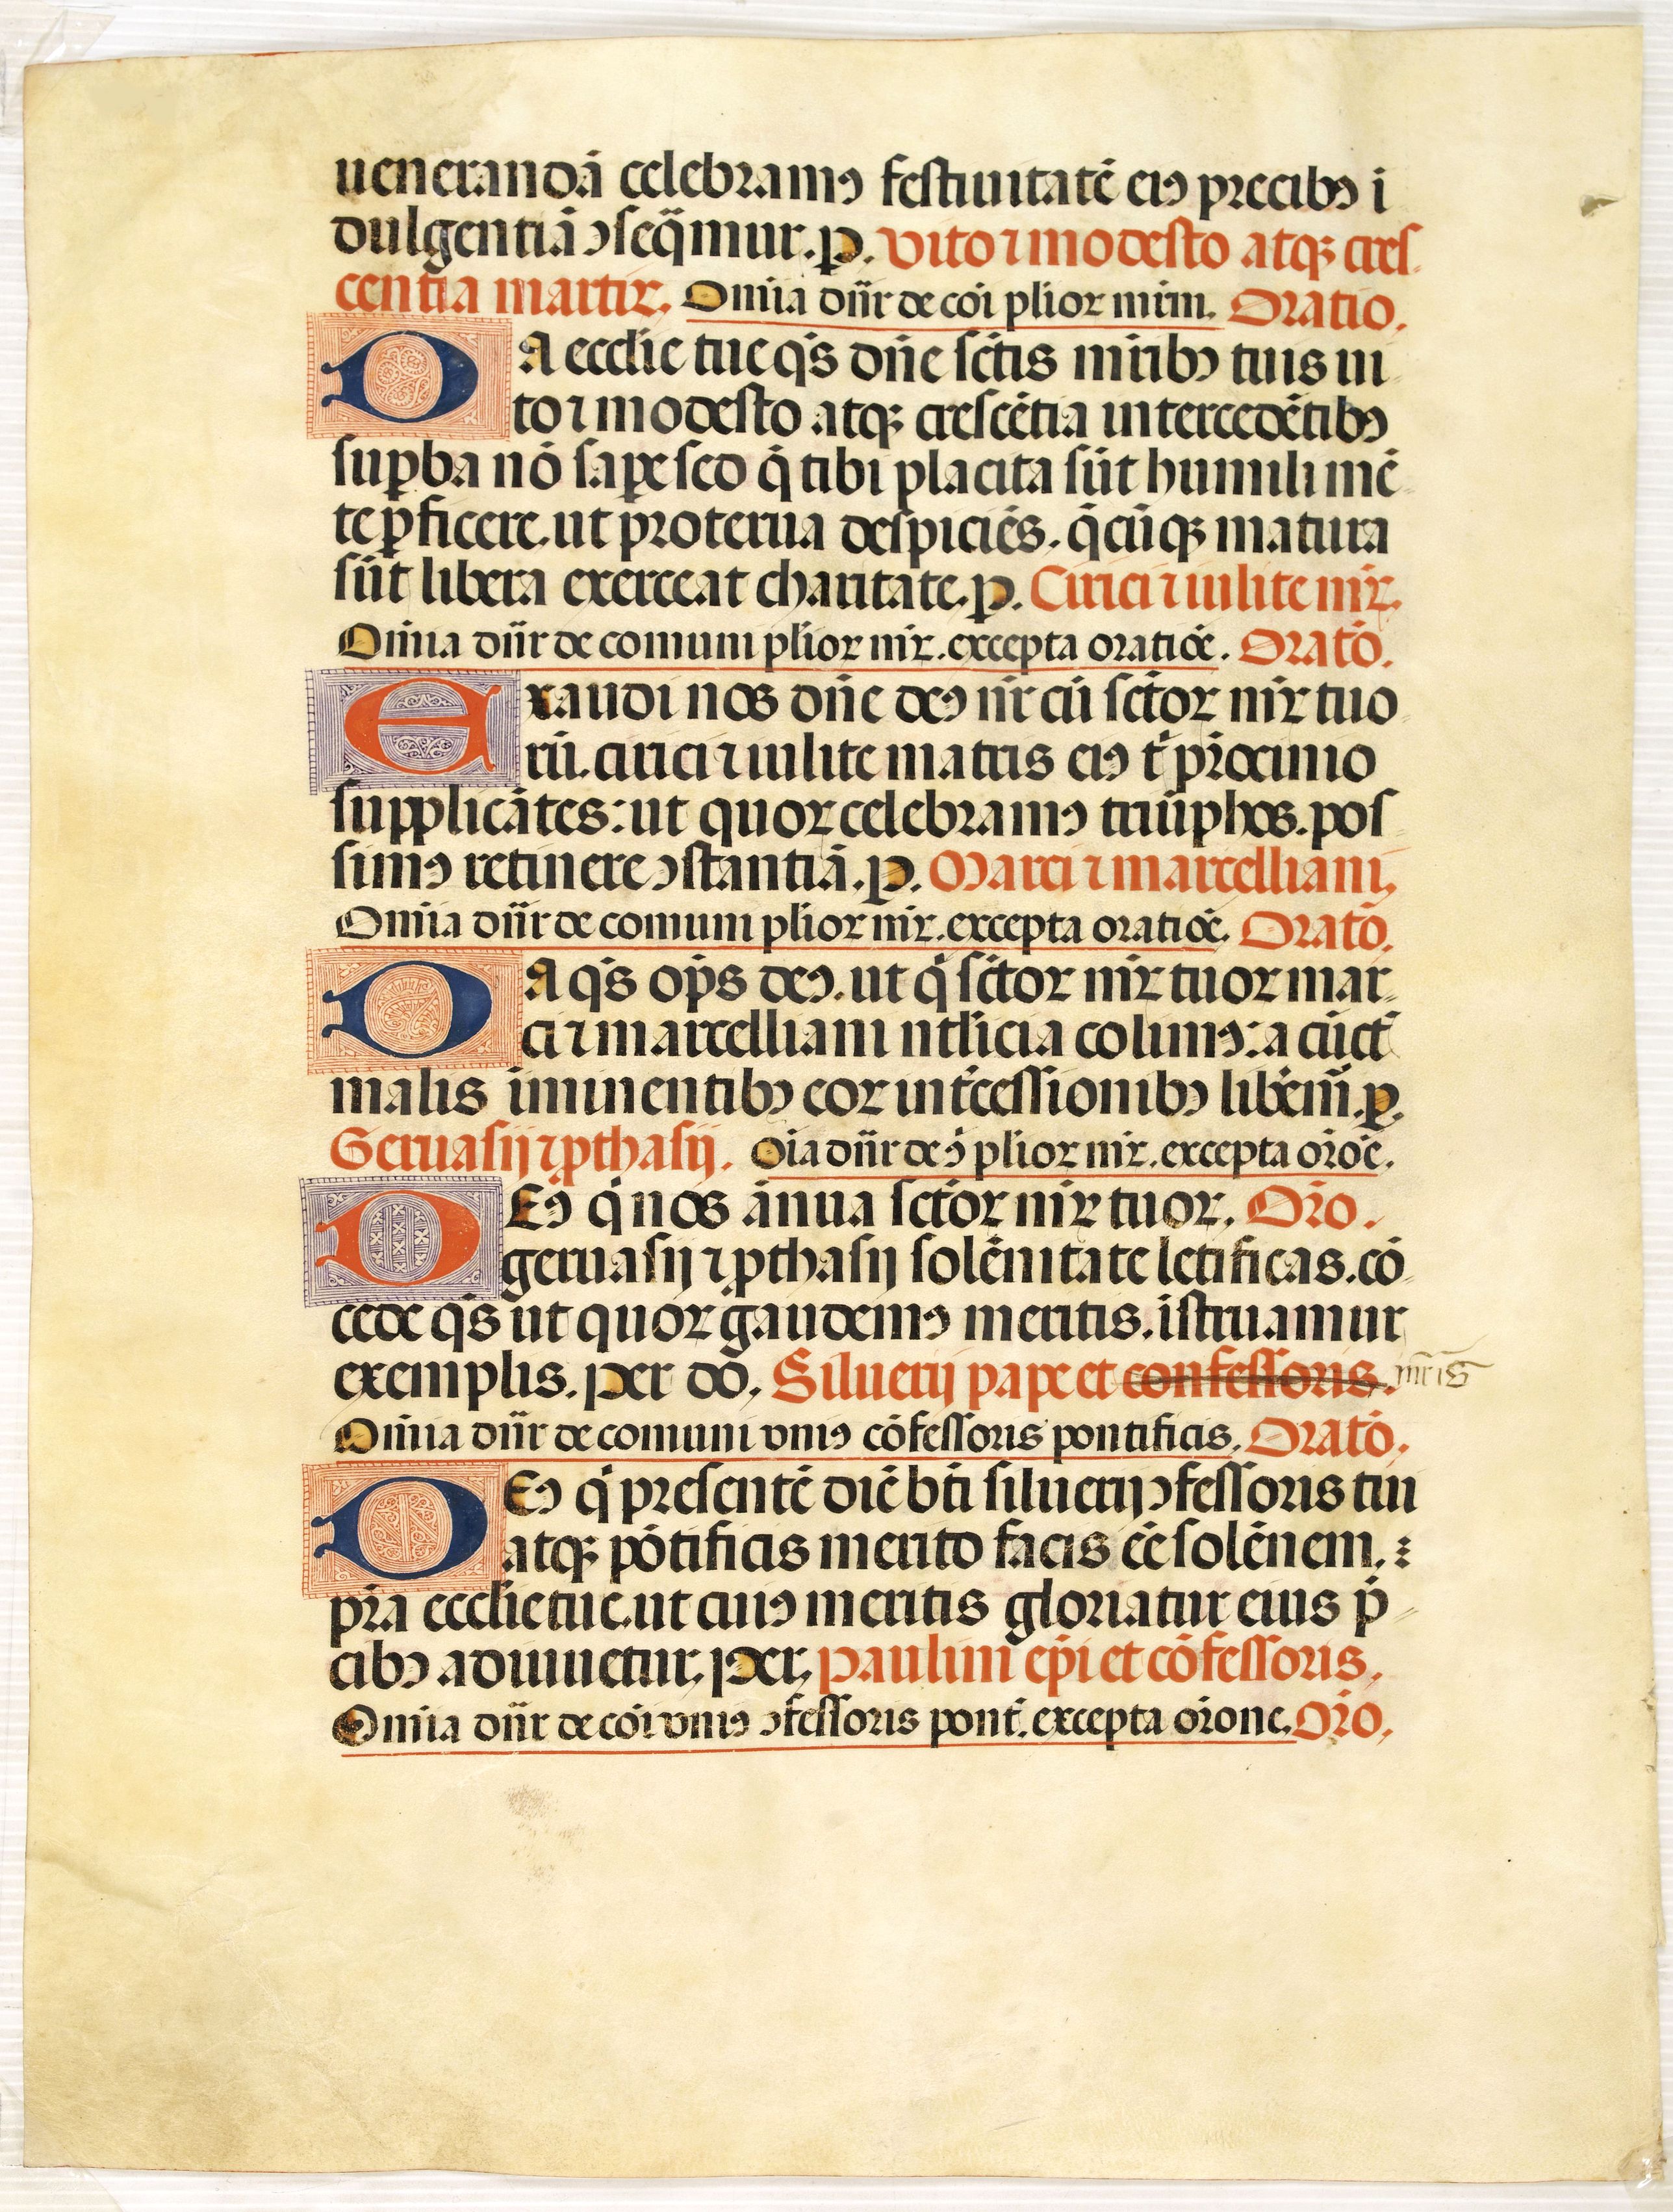 uenerandā celebramꝰ festiuitatē eiꝰ precibꝰ ī
dulgentiā ↄseq̄mur. p. Vito ⁊ modesto atqꝫ cres
centia martir̄. Om̄ia dn̄r de coī plior mr̄m. Oratio.
DA ecclīe tue qs̄ dn̄e sctīs mr̄ibꝰ tuis ui
to ⁊ modesto atqꝫ crescētia intercedētibꝰ
suꝑba nō sapeꝛe sed q̄ tibi placita sūt humili mē
te ꝓficere. ut proterua despiciēs. q̄cūqꝫ matura
sūt libera exerceat charitate. p. Cirici ⁊ iulite mr̄.
Om̄ia dn̄r de comuni plior mr̄. excepta oratiōe. Oratō.
EXaudi nos dn̄e deꝰ nr̄ cū sctōꝝ mr̄ꝝ tuo
rū. cirici ⁊ iulite matris eiꝰ t̄ pr̄ocinio
supplicātes: ut quoꝝ celebramꝰ triūphos. pos
simꝰ retinere ↄstantiā. p. Marci ⁊ marcelliani.
Om̄ia dn̄r de comuni plior mr̄. excepta oratiōe. Oratō.
DA qs̄ op̄s deꝰ. ut q̄ sctōꝝ mr̄ꝝ tuoꝝ mar
ci ⁊ marcelliani nt̄licia colimꝰ: a cūct̄
malis iminentibꝰ eoꝝ int̄cessionibꝰ lib̄em̄. p.
Geruasij ⁊ ꝓthasij. Oīa dn̄r de ↄ̄ plior mr̄. excepta orōē.
DEꝰ q̄ nos ānua sctōꝝ mr̄ꝝ tuoꝝ. Orō.
geruasij ⁊ ꝓthasij solēnitate letificas. cō
cede qs̄ ut quoꝝ gaudemꝰ meritis. īstruamur
exemplis. Per dō. Siluerij pape et confessoris. mr̄is
Om̄ia dn̄r de comuni vniꝰ cōfessoris pontificis. Oratō.
DEꝰ q̄ presentē diē btī siluerij ↄfessoris tui
atqꝫ pōtificis merito facis eē solēnem.
pr̄a ecclīe tue. ut cuiꝰ meritis gloriatur eius p̄
cibꝰ adiuuetur. Per. Paulini ep̄i et cōfessoris.
Om̄ia dn̄r de coī vniꝰ ↄfessoris pont̄. excepta orōne. Orō.